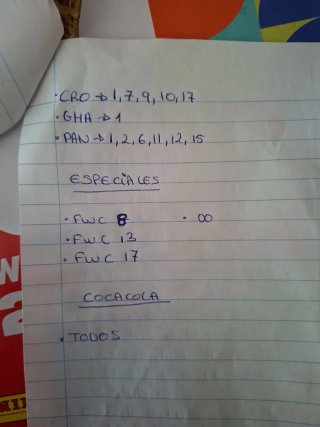 · CRO → 1, 7, 9, 10, 17
· GHA → 1
· PAN → 1, 2, 6, 11, 12, 15
ESPECIALES
· FWC 8 · 00
· FWC 13
· FWC 17
COCACOLA
· TODOS